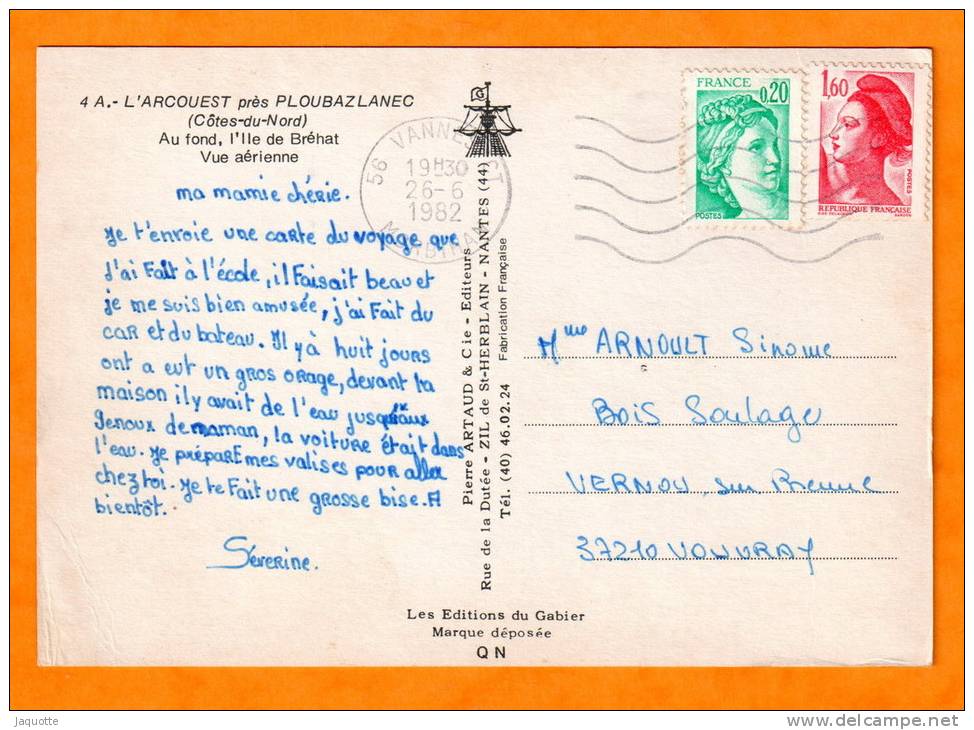 4 A.- L'ARCOUEST près PLOUBAZLANEC
(Côtes-du-Nord)
Au fond, l'Ile de Bréhat
Vue aérienne
ma mamie chérie.
Je t'envoie une carte du voyage que
j'ai Fait à l'école, il Faisait beau et
je me suis bien amusée, j'ai Fait du
car et du bateau. Il y à huit jours
ont a eut un gros orage, devant la
maison il y avait de l'eau jusqu'aux
genoux de maman, la voiture était dans
l'eau. Je prépare mes valises pour aller
chez toi. Je te Fait une grosse bise. A
bientôt.
Séverine.
G
56 VANNES
19H30
26-6
1982
MORBIHAN
FRANCE
0,20
POSTES
1,60
POSTES
REPUBLIQUE FRANÇAISE
Pierre ARTAUD & Cie - Editeurs
Rue de la Dutée - ZIL de St-HERBLAIN - NANTES (44)
Tél. (40) 46.02.24 Fabrication Française
Mme ARNOULT Simone
Bois Soulage
VERNOU sur Brenne
37210 VOUVRAY
Les Editions du Gabier
Marque déposée
Q N
Jaquotte
www.delcampe.net